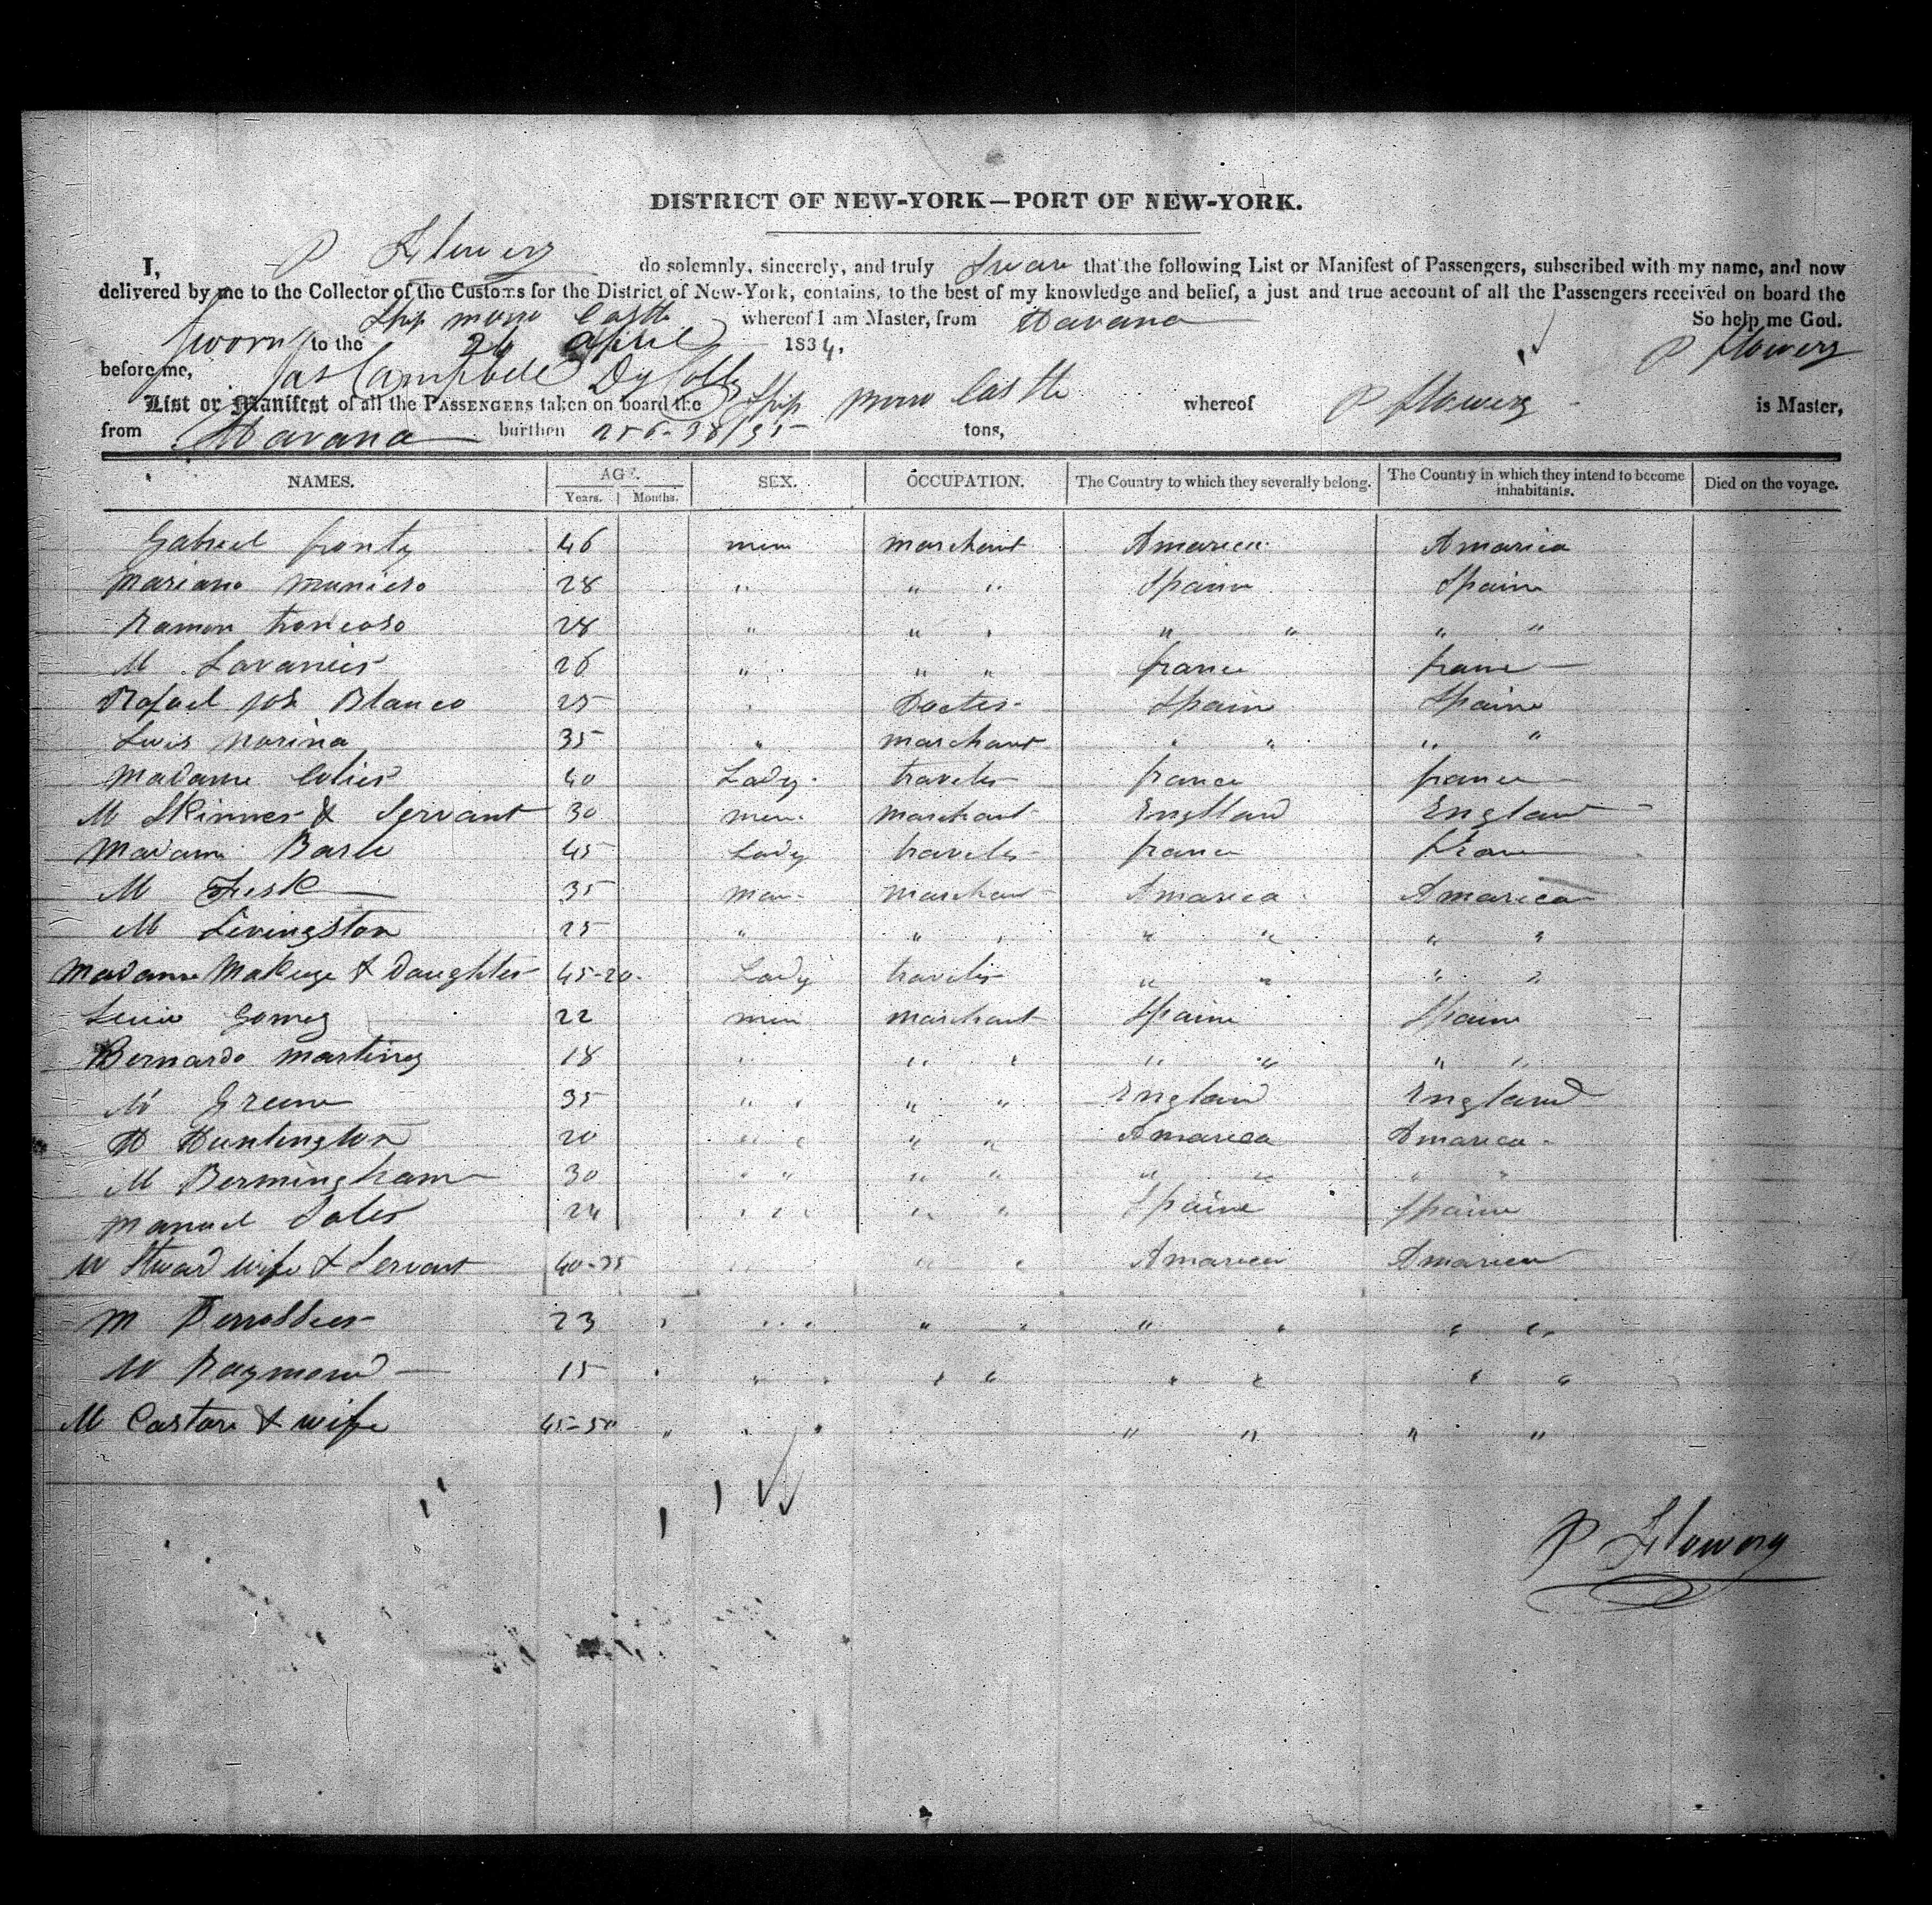 DISTRICT OF NEW-YORK—PORT OF NEW-YORK.
I, P Flowers do solemnly, sincerely, and truly Swear that the following List or Manifest of Passengers, subscribed with my name, and now
delivered by me to the Collector of the Customs for the District of New-York, contains, to the best of my knowledge and belief, a just and true account of all the Passengers received on board the
Ship moro Castle whereof I am Master, from Havana So help me God.
Sworn to the 26 april 1834, P flowers
before me, Jas Campbell Dy Collr
List or Manifest of all the PASSENGERS taken on board the Ship moro Castle whereof P flowers is Master,
from Havana burthen 256-38/95 tons,
NAMES. AGE. Years. Months. SEX. OCCUPATION. The Country to which they severally belong. The Country in which they intend to become inhabitants. Died on the voyage.
Gabriel 46 men marchant Amarica Amarica
Mariano 28 " " " Spaine Spaine
Ramon troncoso 28 " " " " " " "
M 26 " " " france france
Rafael Blanco 25 " Docter Spain Spaine
Luis Marina 35 " marchant " " " "
Madame 40 Lady traveler france france
M Skinner & Servant 30 men marchant Engtland England
Madame 45 Lady traveler france france
M Fisk 35 man marchant Amareca Amareca
M Livingston 25 " " " " " " "
Madame & Daughter 45-20 Lady traveler " " " "
Gomez 22 men marchant Spaine Spaine
Bernardo martinez 18 " " " " " " "
M Greene 35 " " " " England England
H Huntington 20 " " " " Amareca Amareca
M Bermingham 30 " " " " " " " "
Manuel Soler 24 " " " " " Spaine Spaine
M Steward wife & Servant 40-35 " " " " Amarica Amarica
M 23 " " " " " " " " " "
M Raymond 15 " " " " " " " " "
M Castore & wife 45-50 " " " " " " "
P Flowers